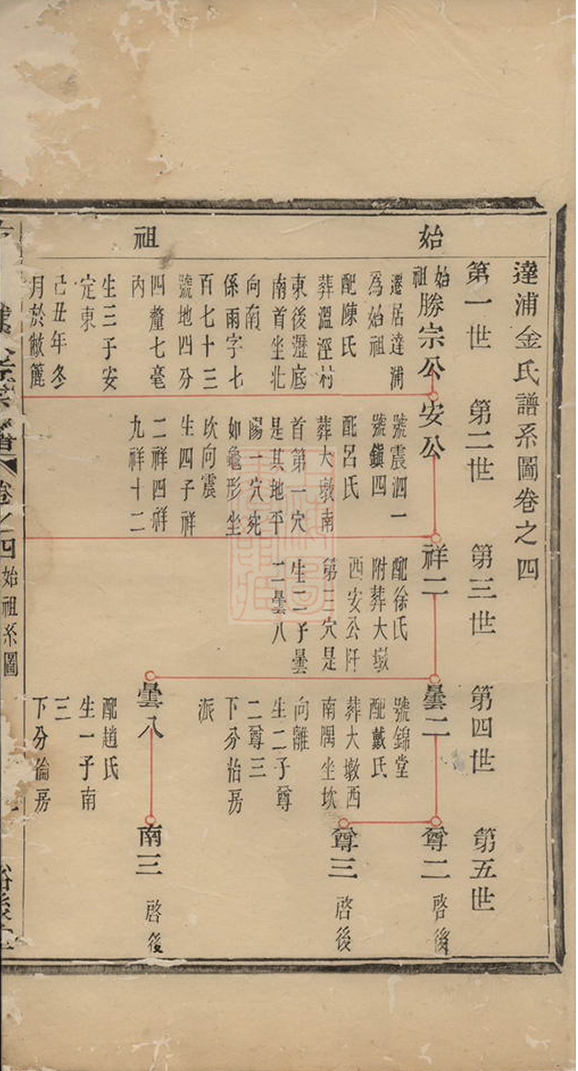 達浦金氏譜系圖卷之四
始祖
第一世
第二世
第三世
第四世
第五世
始祖
勝宗公
遷居達浦
為始祖
配陳氏
葬溫涇村
東後瀝底
南首坐北
向南
係雨字七
百七十三
號地四分
四釐七毫
內
生三子安
定東
己丑年冬
月於敝簏
安公
號震泗一
號鎮四
配呂氏
葬大墩南
首第一穴
是其地平
陽一穴宛
如龜形坐
坎向震
生四子祥
二祥四祥
九祥十二
祥二
配徐氏
附葬大墩
西安公阡
第三穴是
生二子曇
二曇八
曇二
號錦堂
配戴氏
葬大墩西
南隅坐坎
向離
生二子尊
二尊三
下分怡房
派
曇八
配趙氏
生一子南
三
下分倫房
尊二
啓後
尊三
啓後
南三
啓後
卷之四
始祖系圖